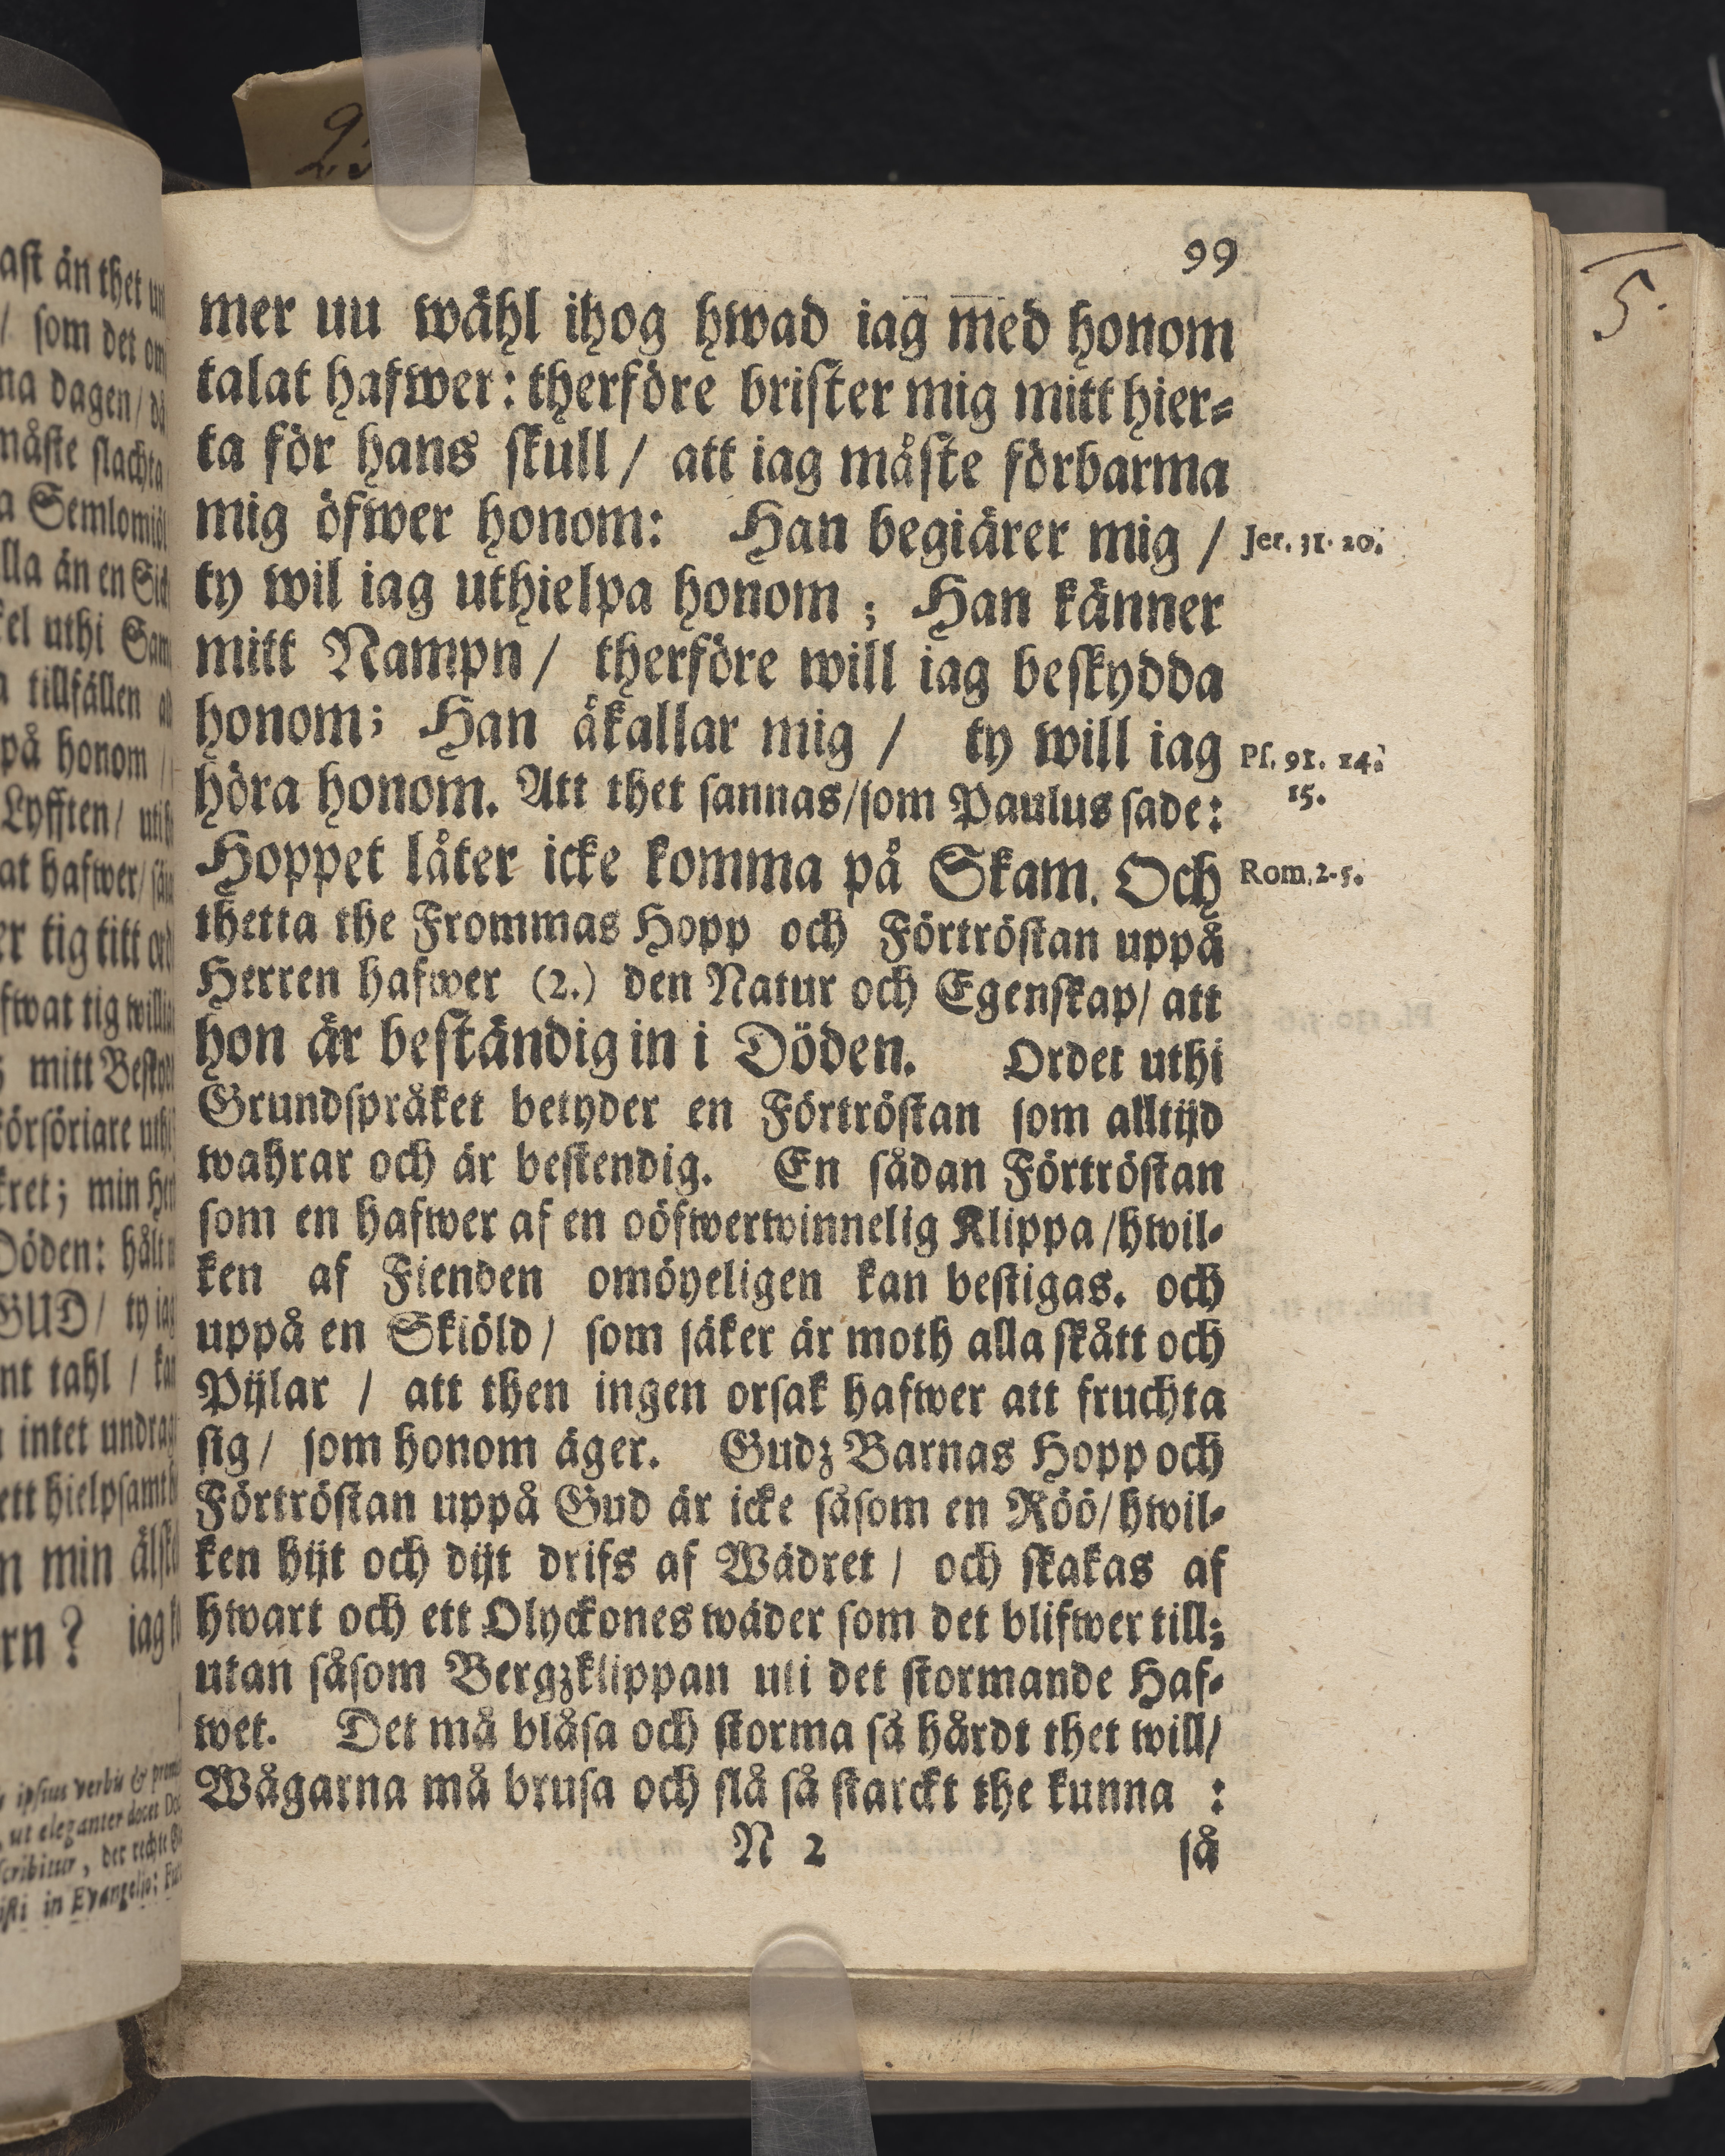 99
mer uu wähl ihog hwad iag med honom
talat hafwer: therföre brister mig mitt hier-
ta för hans skull / att iag måste förbarma
mig öfwer honom: Han begiärer mig /
Jer. 31. 20.
ty wil iag uthielpa honom ; Han känner
mitt Nampn / therföre will iag beskydda
honom; Han åkallar mig / ty will iag
Ps. 91. 14.
höra honom. Att thet sannas/som Paulus sade:
15.
Hoppet låter icke komma på Skam. Och
Rom. 2-5.
thetta the Frommas Hopp och Förtröstan uppå
Herren hafwer (2.) den Natur och Egenskap/ att
hon är beständig in i Döden. Ordet uthi
Grundspråket betyder en Förtröstan som alltijd
wahrar och är bestendig. En sådan Förtröstan
som en hafwer af en oöfwerwinnelig Klippa/hwil-
ken af Fienden omöyeligen kan bestigas. och
uppå en Skiöld / som säker är moth alla skått och
Pijlar / att then ingen orsak hafwer att fruchta
sig / som honom äger. Gudz Barnas Hopp och
Förtröstan uppå Gud är icke såsom en Röö/hwil-
ken hijt och dijt drifs af Wädret / och skakas af
hwart och ett Olyckones wäder som det blifwer till;
utan såsom Bergzklippan uti det stormande Haf-
wet. Det må blåsa och storma så hårdt thet will/
Wågarna må brusa och slå så starckt the kunna :
N 2 så
5.